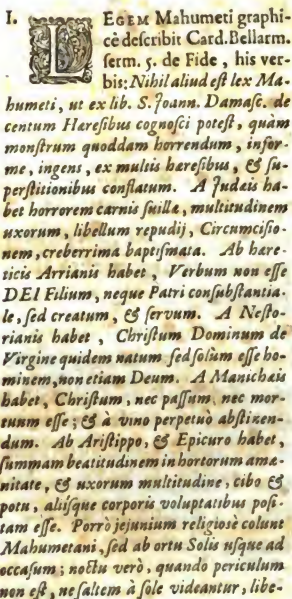 I. LEGEM Mahumeti graphi-
cè describit Card. Bellarm.
serm. 5. de Fide, his ver-
bis: Nihil aliud est lex Ma-
humeti, ut ex lib. S. Joann. Damasc. de
centum Hæresibus cognosci potest, quàm
monstrum quoddam horrendum, infor-
me, ingens, ex multis hæresibus, & su-
perstitionibus conflatum. A Judæis ha-
bet horrorem carnis suillæ, multitudinem
uxorum, libellum repudij, Circumcisio-
nem, creberrima baptismata. Ab hære-
ticis Arrianis habet, Verbum non esse
DEI Filium, neque Patri consubstantia-
le, sed creatum, & servum. A Nesto-
rianis habet, Christum Dominum de
Virgine quidem natum sed solùm esse ho-
minem, non etiam Deum. A Manichæis
habet, Christum, nec passum, nec mor-
tuum esse; & à vino perpetuò abstinen-
dum. Ab Aristippo, & Epicuro habet,
summam beatitudinem in hortorum amæ-
nitate, & uxorum multitudine, cibo &
potu, aliisque corporis voluptatibus posi-
tam esse. Porrò jejunium religiosè colunt
Mahumetani, sed ab ortu Solis usque ad
occasum; noctu verò, quando periculum
non est, ne saltem à sole videantur, libe-